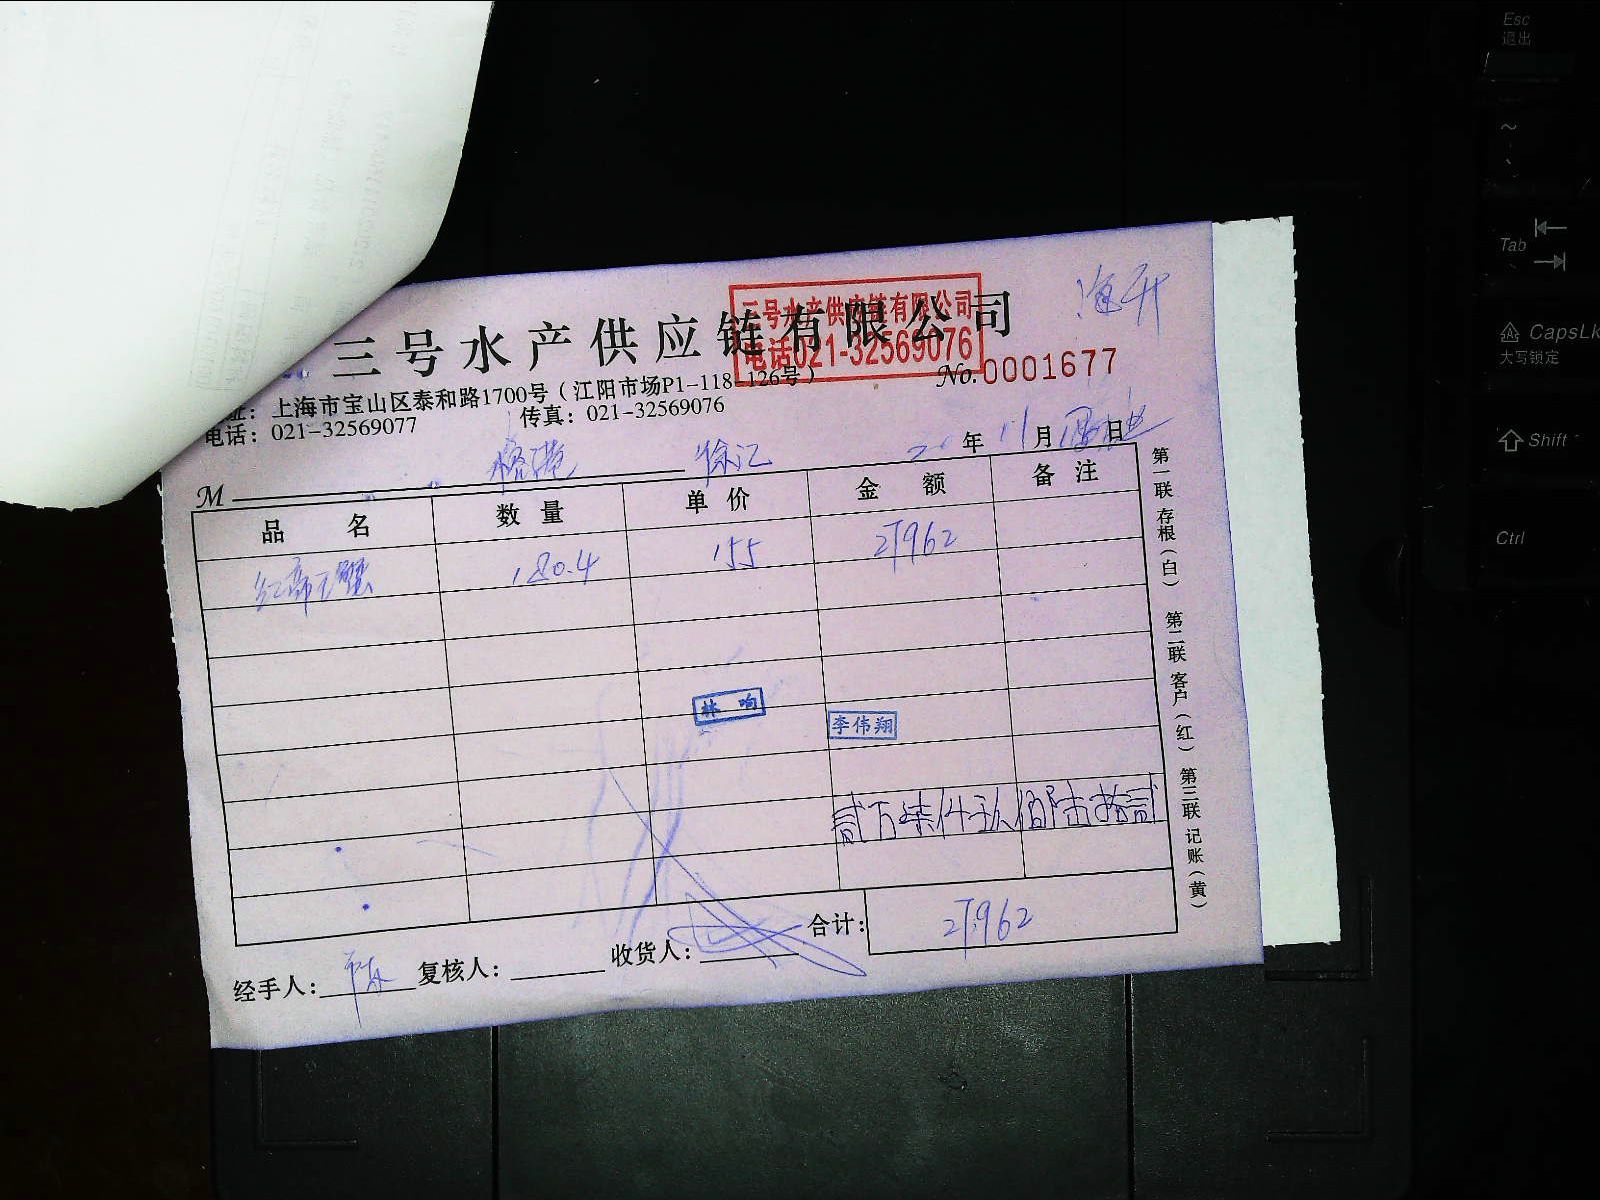 三号水产供应链有限公司
三号水产供应链有限公司
电话021-32569076
海升
No.0001677
址：上海市宝山区泰和路1700号（江阳市场P1-118-126号）
电话：021-32569077 传真：021-32569076
M 徐汇 年 11月 日
品名 数量 单价 金额 备注
红帝王蟹 180.4 155 27962
林响
李伟翔
贰万柒仟玖佰陆拾贰
合计：27962
经手人： 复核人： 收货人：
第一联 存根（白） 第二联 客户（红） 第三联 记账（黄）
Esc
退出
~
Tab
CapsLk
大写锁定
Shift
Ctrl